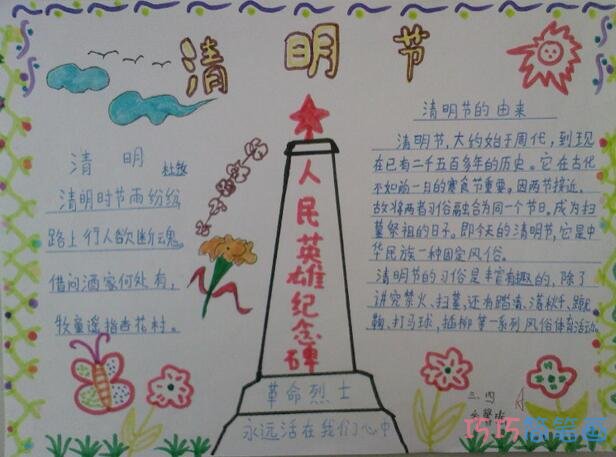 清明节
清明 杜牧
清明时节雨纷纷
路上行人欲断魂。
借问酒家何处有，
牧童遥指杏花村。
人民英雄纪念碑
革命烈士
永远活在我们心中
清明节的由来
清明节，大约始于周代，到现
在已有二千五百多年的历史。它在古代
不如前一日的寒食节重要。因两节接近，
故将两者习俗融合为同一个节日。成为扫
墓祭祖的日子。即今天的清明节，它是中
华民族一种固定风俗。
清明节的习俗是丰富有趣的，除了
讲究禁火、扫墓，还有踏青、荡秋千、蹴
鞠、打马球，插柳等一系列风俗体育活动
三.四
巧巧简笔画